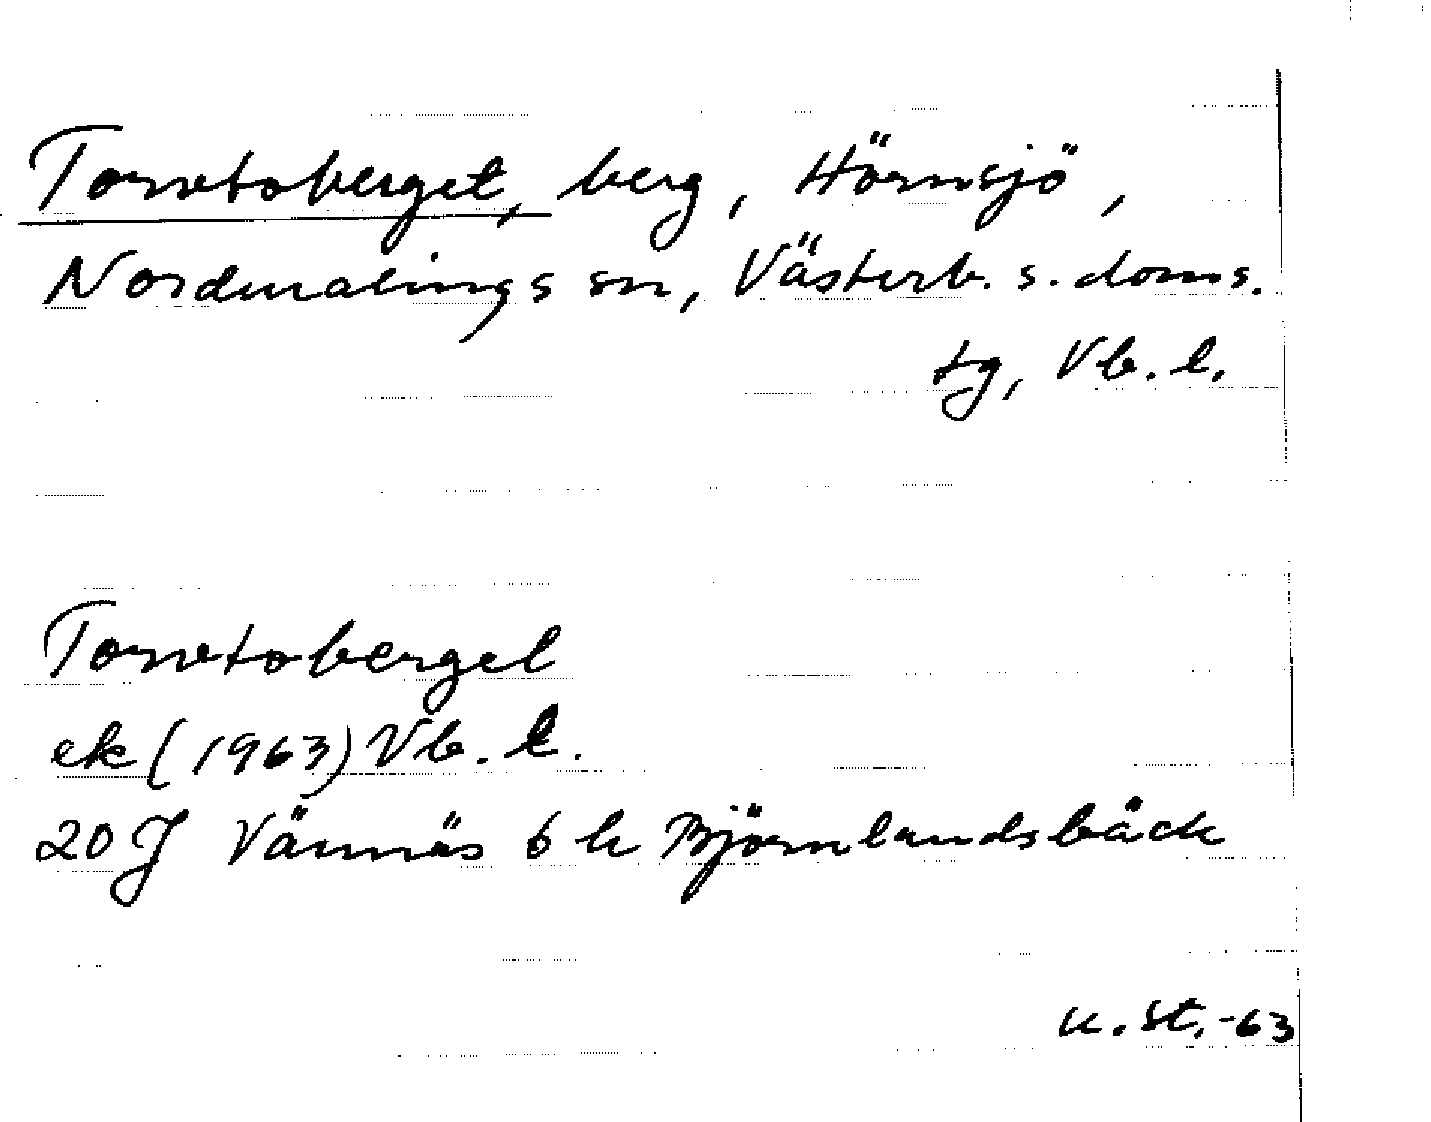 Torvtoberget, berg, Hörnsjö,
Nordmalings sn, Västerb. s. doms.
tg, Vb. l.
Torvtoberget
ek (1963) Vb. l.
20 J Vännäs 6 h Björnlandsbäck
u. St. -63